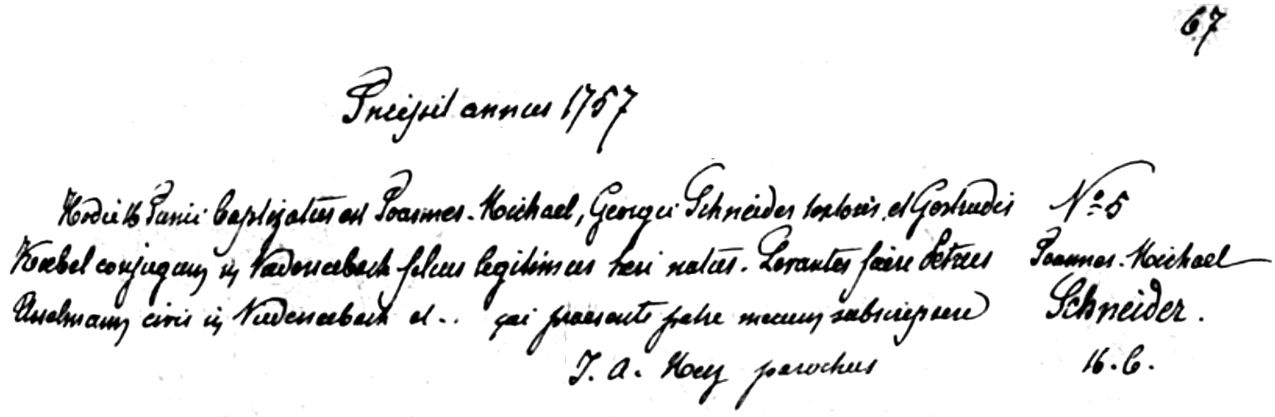 67
Incipit annus 1757
Hodie 16 Junii baptizatus est Joannes-Michael, Georgii Schneider textoris, et Gertrudis
Koebel conjugum in Niedererbach filius legitimus heri natus. Levantes fuere Petrus
Anselmann civis in Niedererbach et .. qui praesente patre mecum subscripsere
J. A. Hoey parochus
No 5
Joannes-Michael
Schneider.
16. 6.